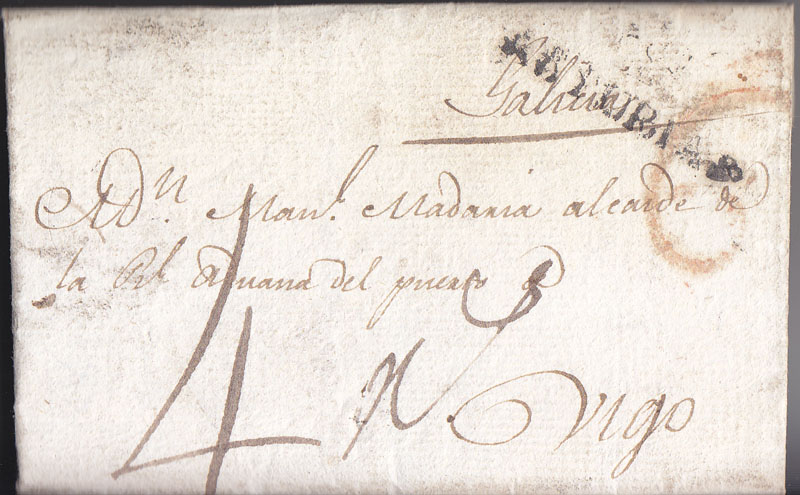 Galicia
ASTURIAS
A Dn. Manl. Madaria alcaide de
la Rl. Aduana del puerto de
Vigo
4